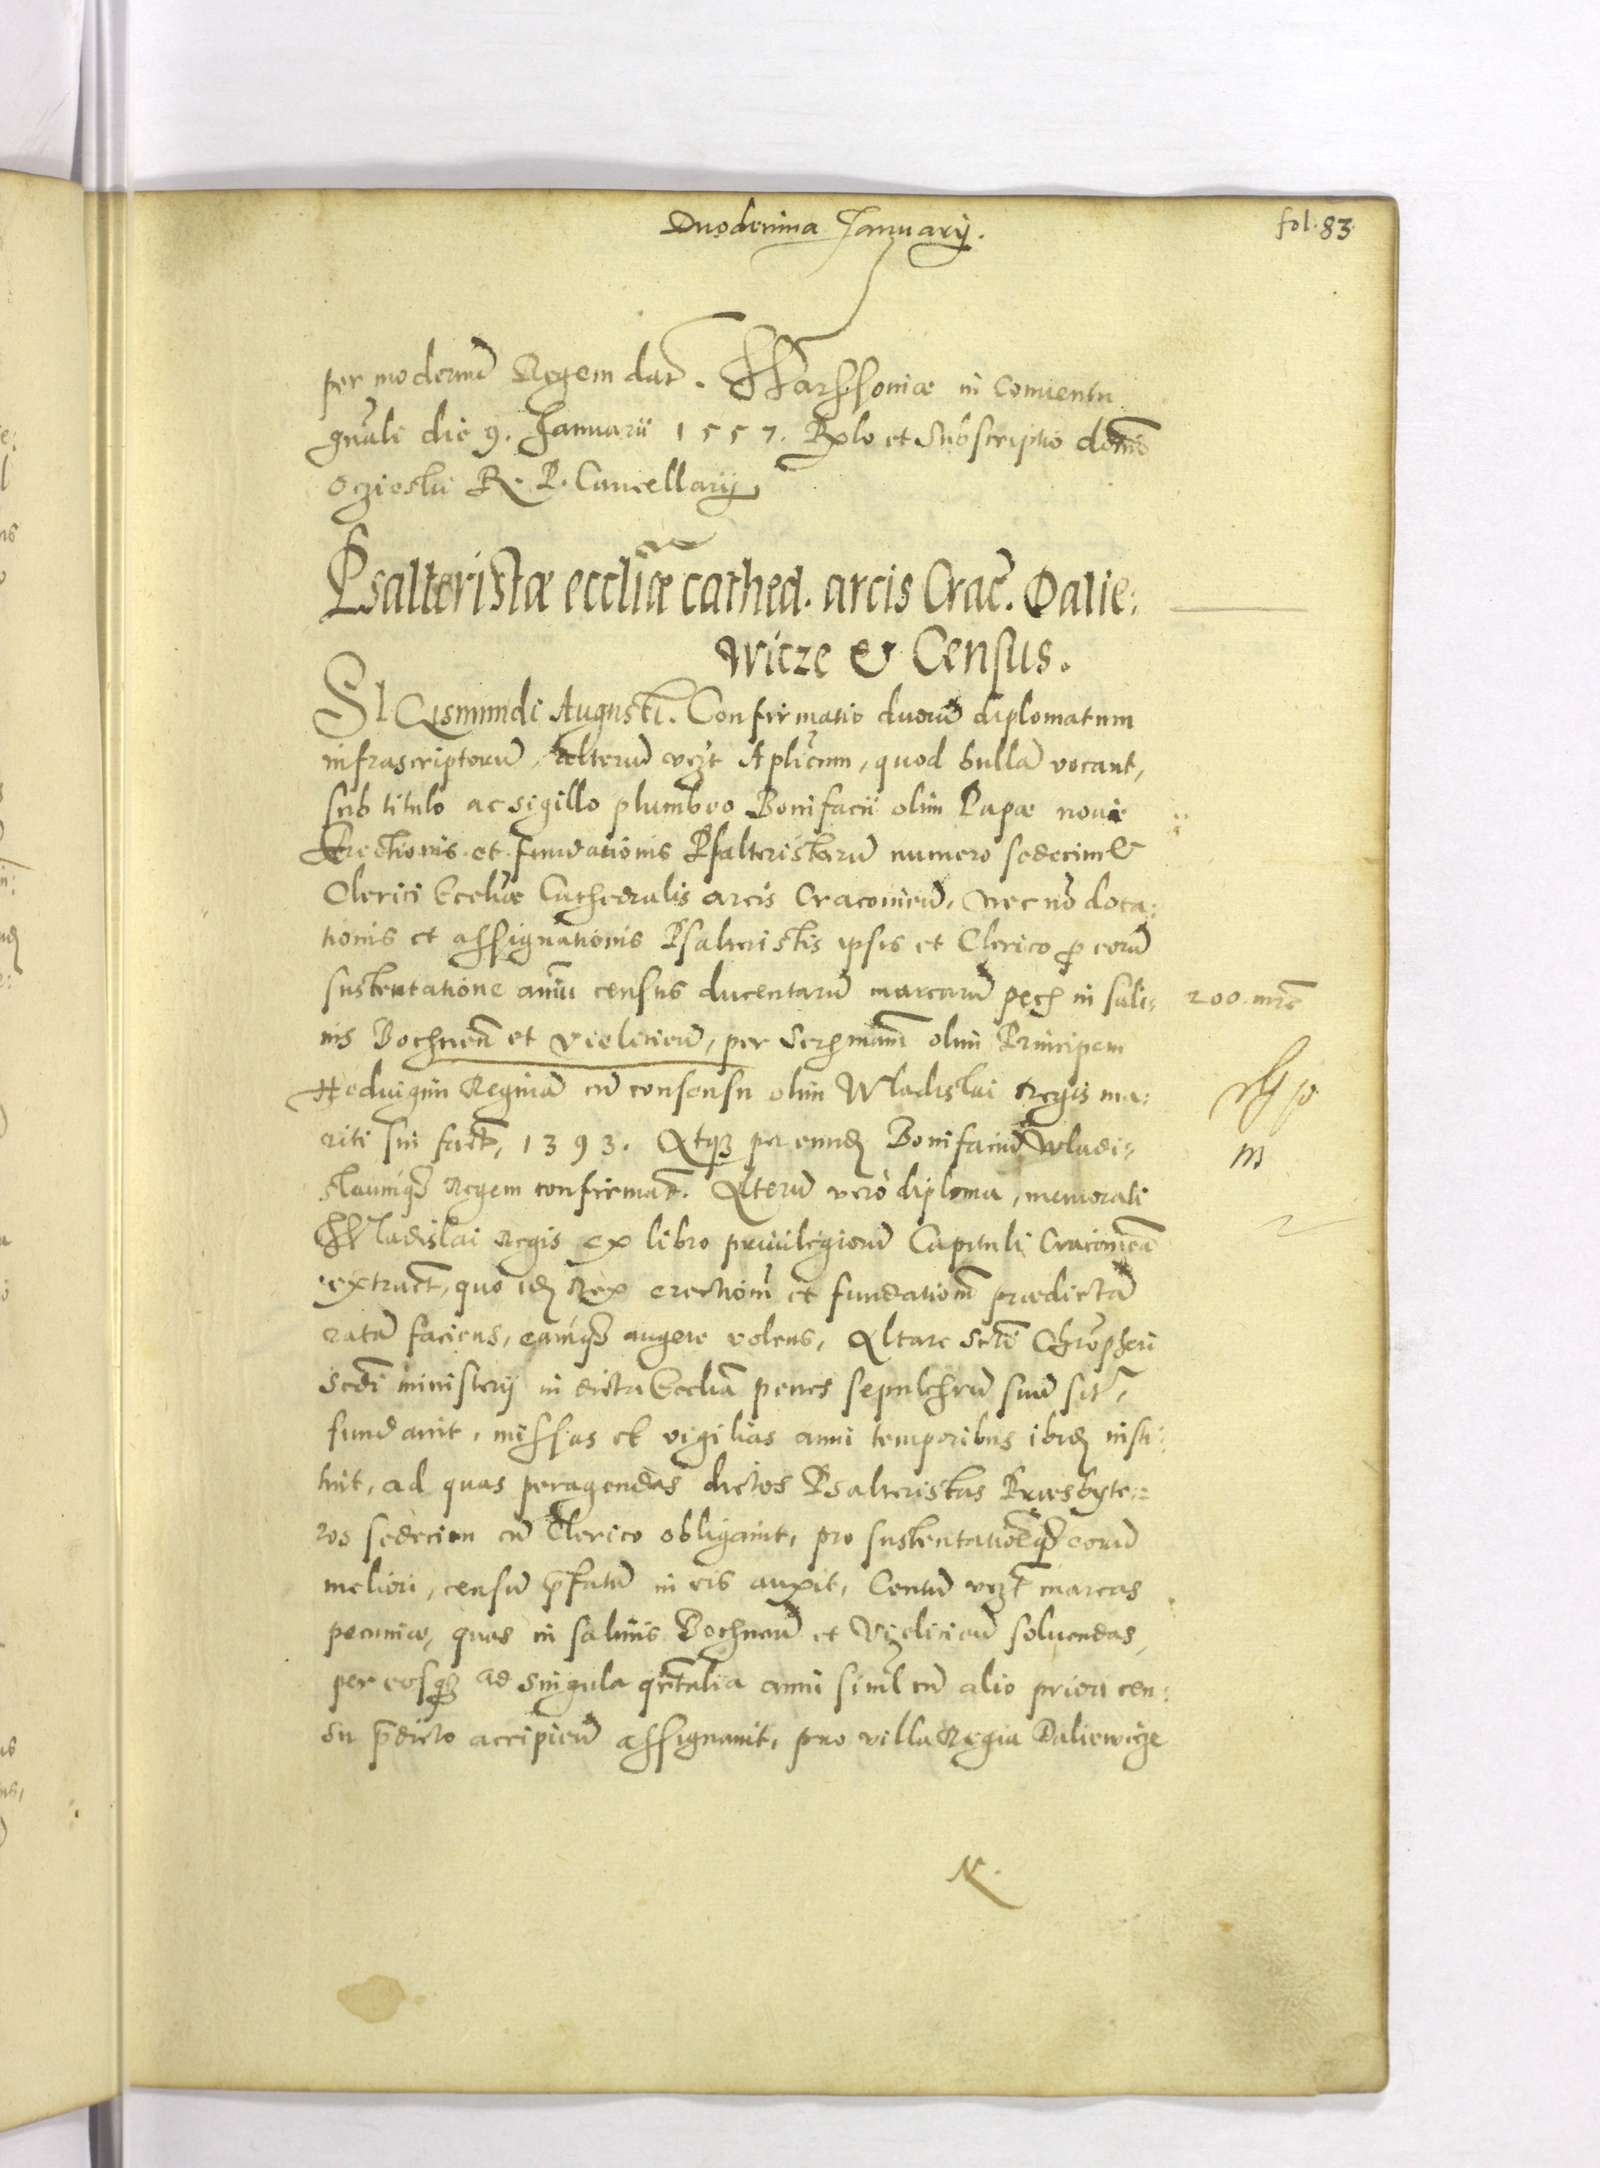 Duodecima January.
fol. 83
per modernū Regem dat̄. Warssoniæ in Conuentu
gn̄ali die 9. Januarii 1557. Rx̄lo et Subscriptio doms̄
Oczieski R. P. Cancellarij
Psalteristæ eccliæ cathed. arcis Crac̄. Dalie:
wicze & Census.
SIGismundi Augusti. Confirmatio duorū diplomatum
infrascriptorū, alterū vızt Aplicum, quod bullā vocant,
sub titulo ac sigillo plumbeo Bonifacii olim Papæ noui
Erectionis et fundationis Psalteristarū numero sedecim &
Clerici Eccliæ Cathedralis arcis Cracouien̄, Nec nō dota:
tionis et assignationis Psalteristis ipsis et Clerico ꝓ eorū
sustentatione annui census ducentarū marcarū pecū in sali:
200. mrc̄
nis Bochnen̄ et Vielicien̄, per Serēmam olim Principem
Heduigim Reginā cū consensu olim Wladislai Regis ma:
riti sui fact̄, 1393. Atqꝫ per eundē Bonifaciū Wladi:
m
slaumqꝫ Regem confirmat̄. Alterū vero diploma, memorati
Wladislai Regis ex libro priuilegiorū Capituli Cracouien̄
extract, quo idē Rex erectionē et fundationē prædictā
ratā faciens, eamqꝫ augere volens, Altare Sctī Chrōpheri
Scdi ministerij in dicta Ecclīa penes sepulchrū suū sit̄,
fundauit, missas et vigilias anni temporibus ibidē insti:
tuit, ad quas peragendas dictos Psalteristas Præsbyte:
ros sedecim cū Clerico obligauit, pro sustentationeqꝫ eorū
meliori, censū p̄fatū in eis auxit, Centū vızt marcas
pecuniæ, quas in salinis Bochnen̄ et Vielicien̄ soluendas,
per eosqꝫ ad singula qrtalia anni siml cū alio priori cen:
su p̄dicto accipien̄ assignauit, pro villa Regia Daliewicze
N.